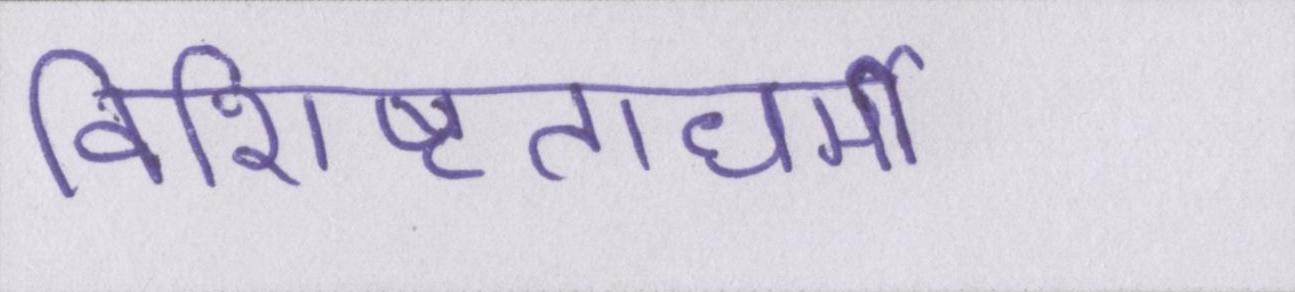 विशिष्टताधर्मी